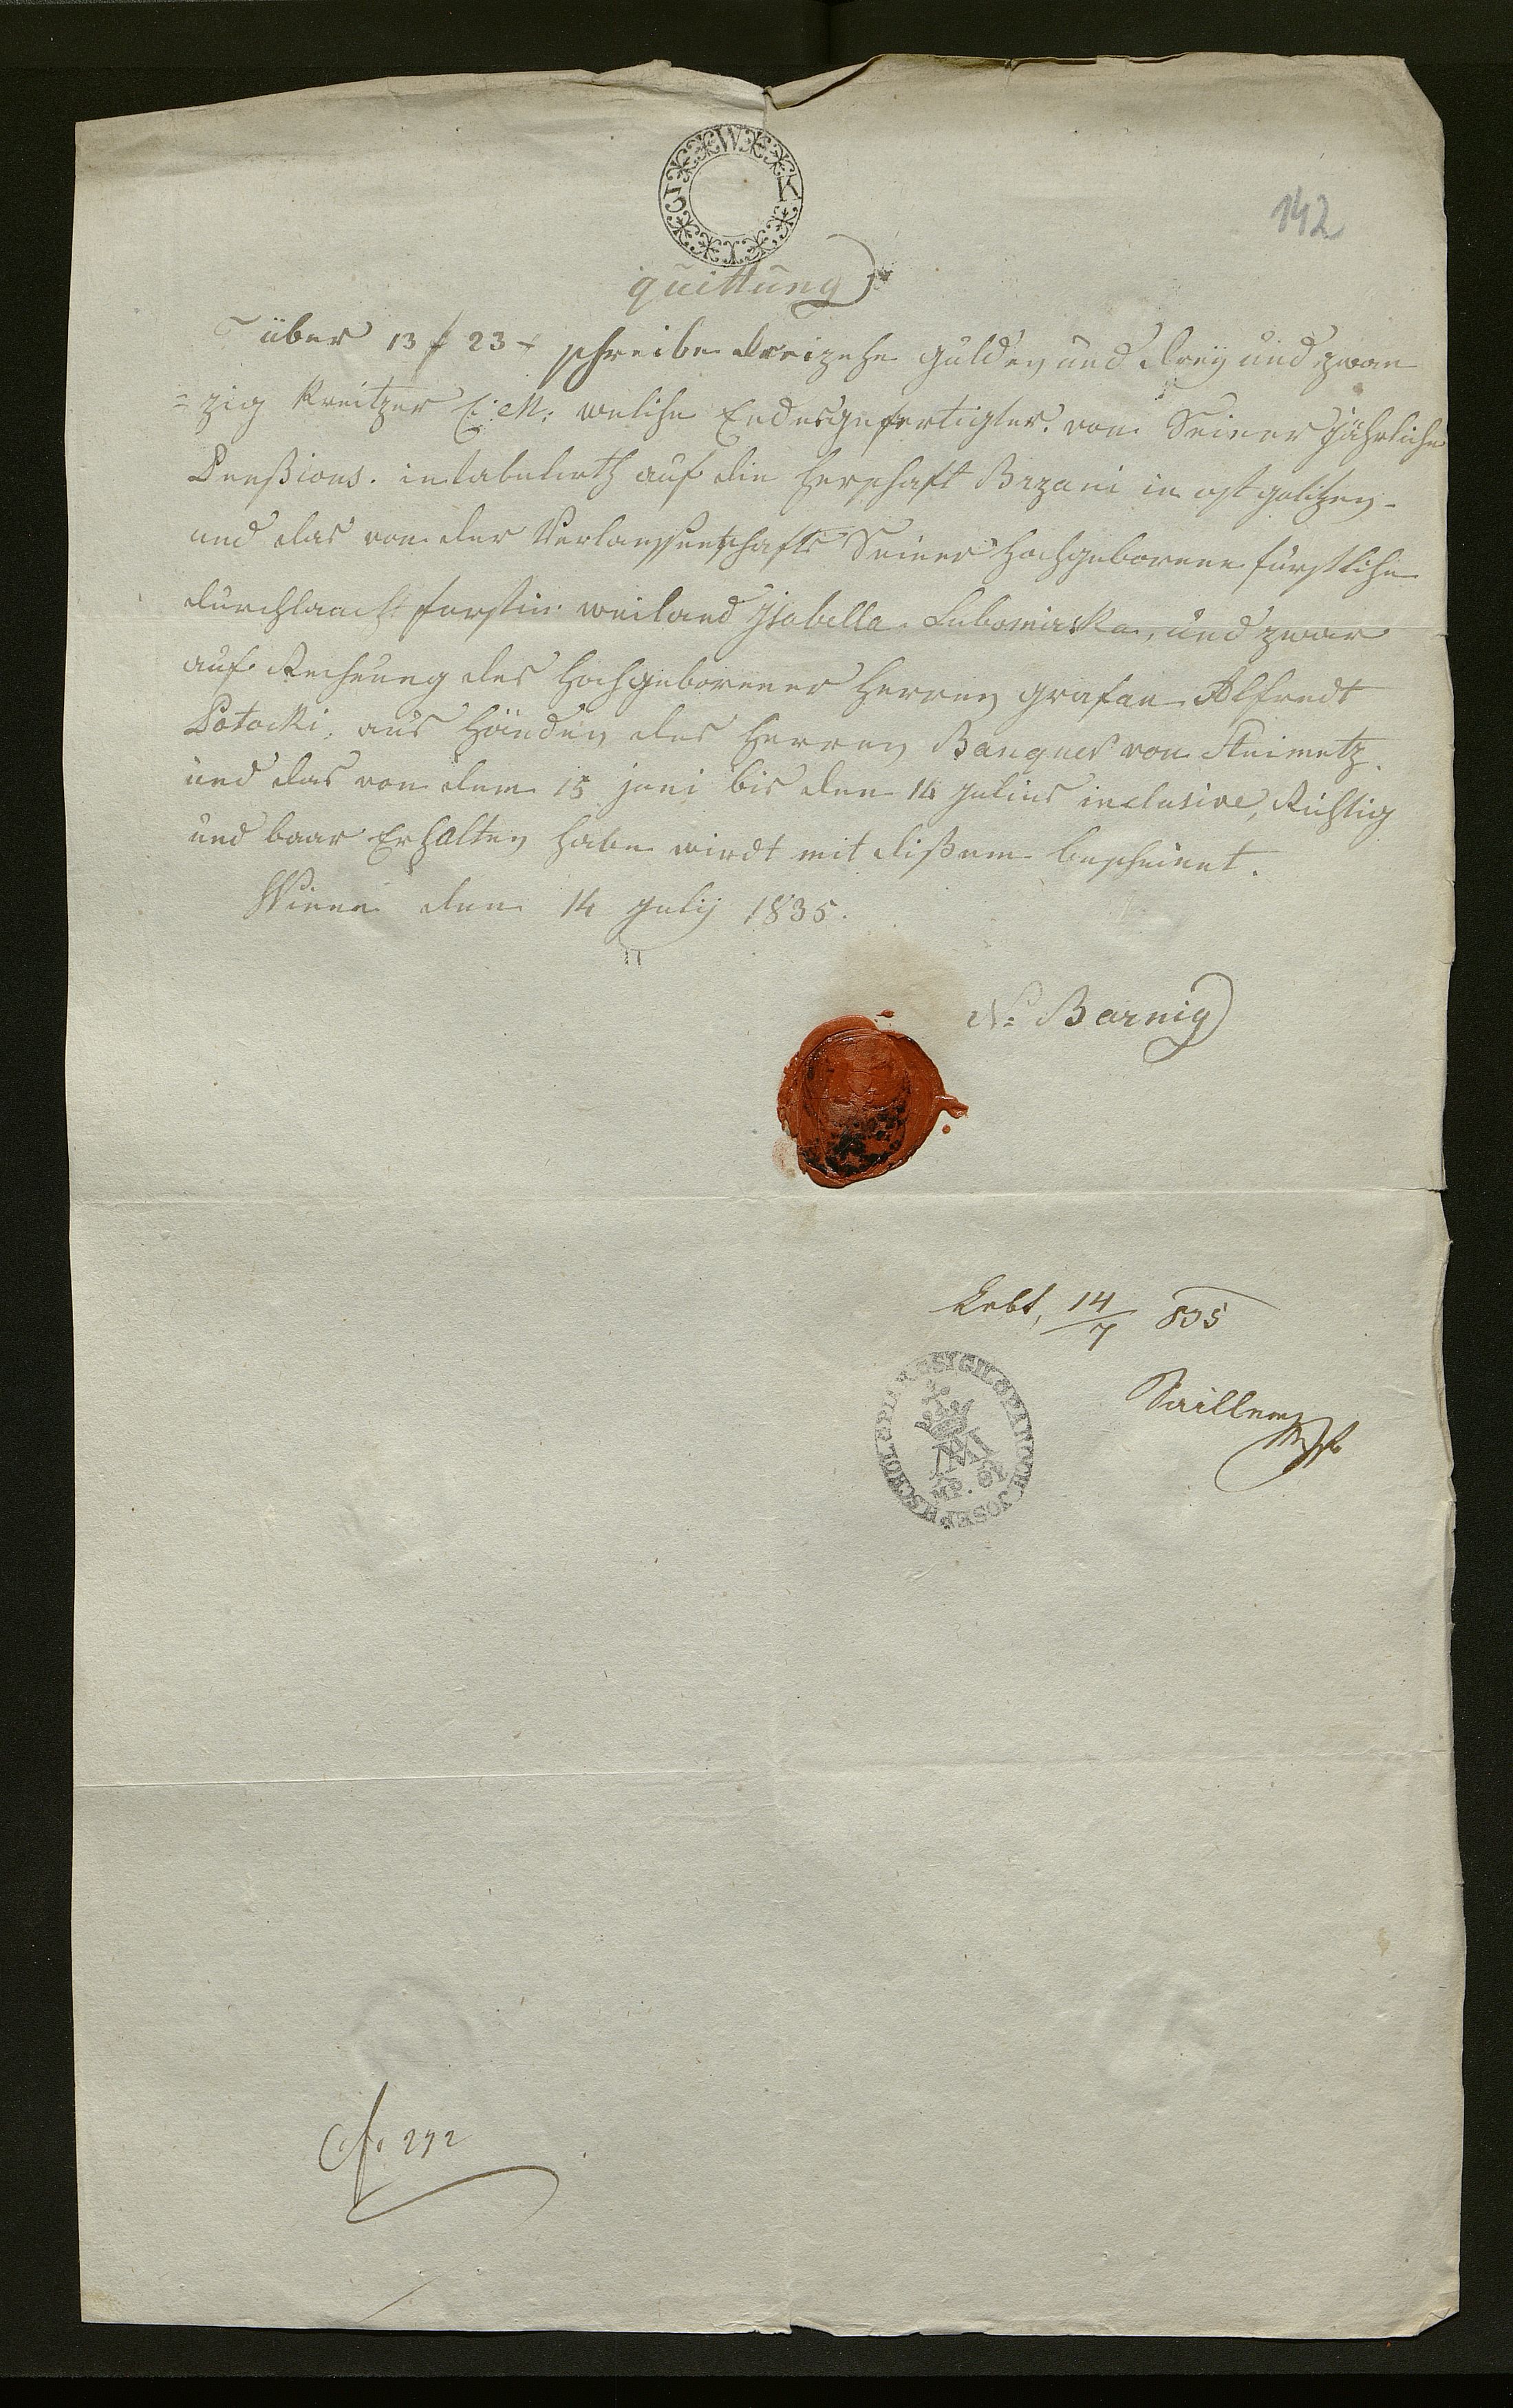 W K I G
142
quittung
über 13 f 23 x schreibe dreizehn gulden und dreÿ und zwan
=zig Kreitzer C: M: welche Endesgefertigter. von Seiner Jährliche
Penßions. intabulirth auf die herschaft Brzani in ostgalitzen
und das von der Verlassenschafts Seiner Hochgeborenen fürstliche
durchlaacht forstin weiland Jsabella Lubomirska, und zwar
auf Rechnung des Hochgeborener Herren grafen Alfredt
Potocki, aus Händen des Herren Banquer von Steimetz.
und das von dem 15 juni bis den 14 Julius inclusive, Richtig
und baar Erhalten habe wirdt mit dißem bescheinet.
Wienn den 14 Julÿ 1835.
N: Barnig
Lebt, 14/7 835
SIGIL PAROCH JOSEPH SCHOL PIAR
MP.
C. f. 292